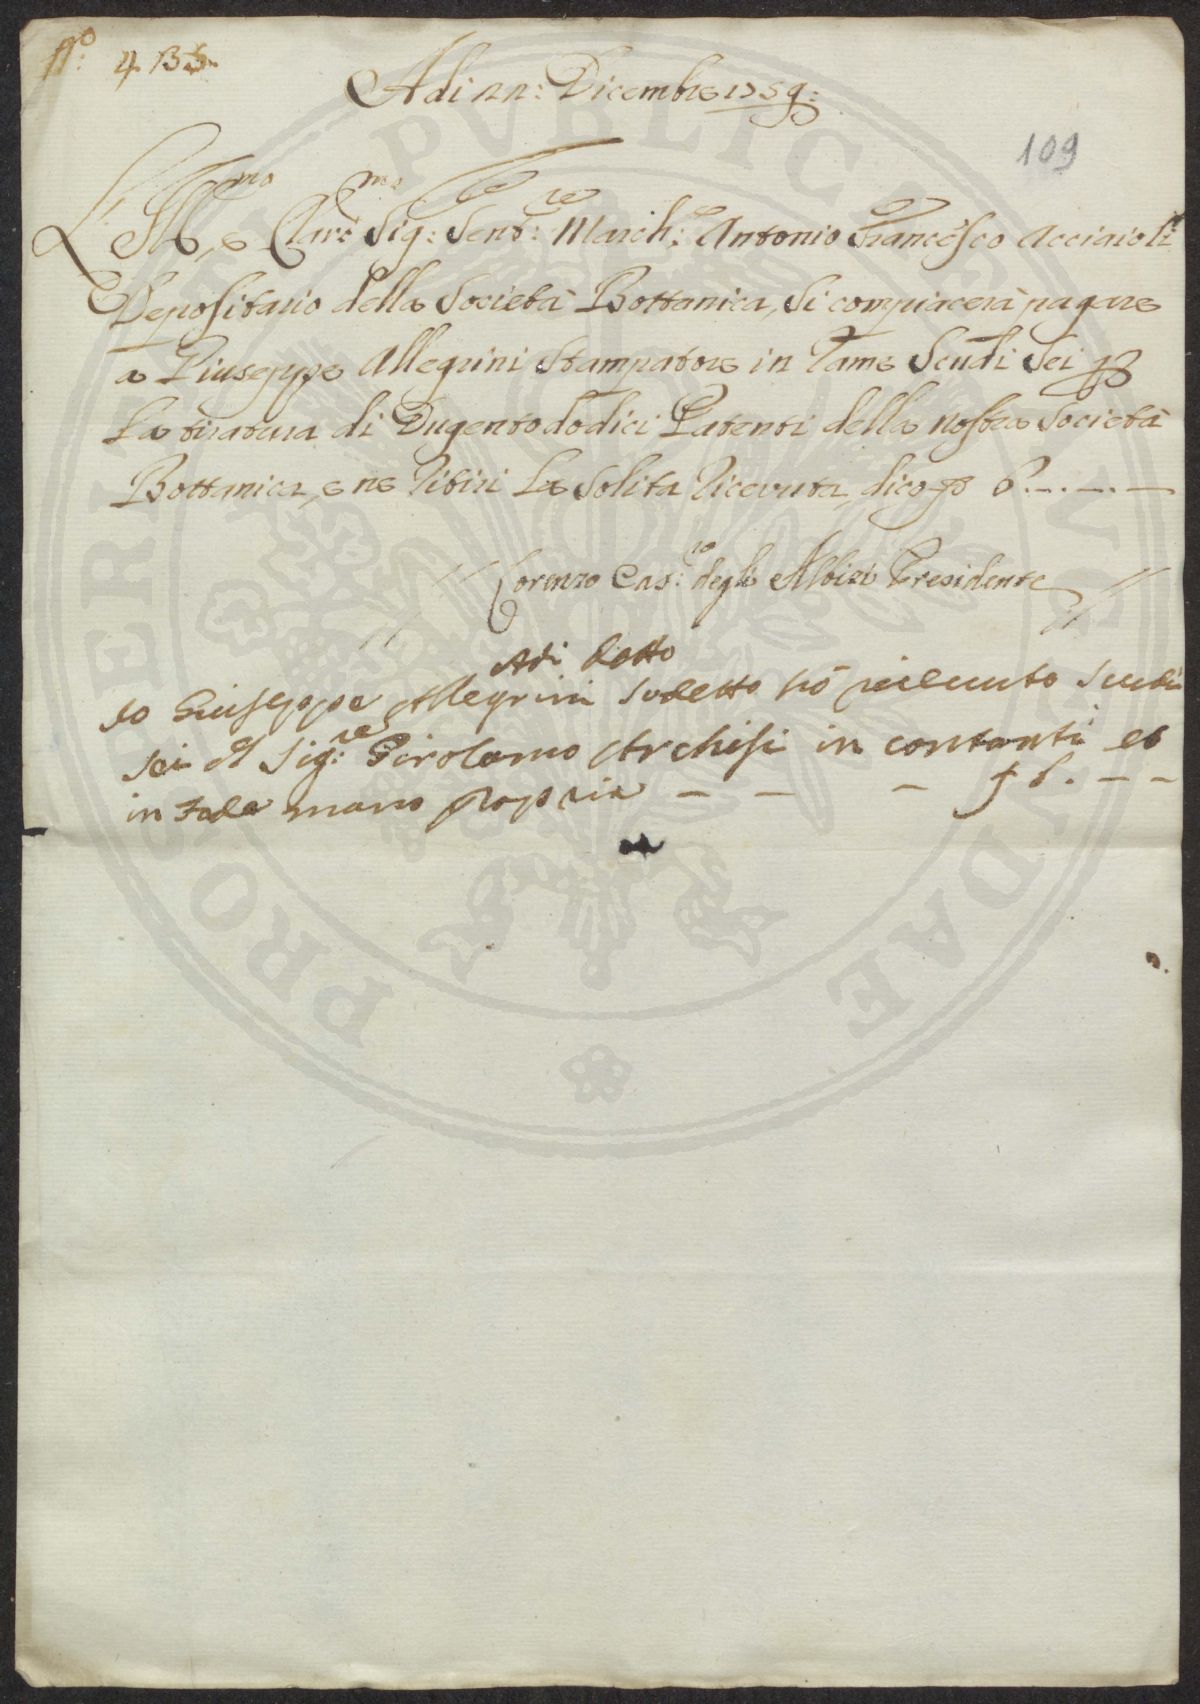 N.o 4. 135.
Adi 22: Dicembre 1759:
109
L'Ill.mo, e Clar:mo Sig:re Sent:re March:e Antonio Francesco Acciaioli
Depositario della Società Bottanica, si compiacerà pagare
a Giuseppe Allegrini Stampatore in Rame Scudi Sei p
La tiratura di Dugentododici Patenti della nostra Società
Bottanica, e ne Ritiri La Solita Ricevuta, dico p 6.-.-.-
Lorenzo Gas:ro degli Albizi Presidente
Adi Detto
Io Giuseppe Allegrini sudetto hò riceuuto Scudi
sei dl Sig:re Girolamo Archisi in contanti et
in fede mano propria - - - f 6. - -
PROSPERITATI PVBLICAE AVGENDAE